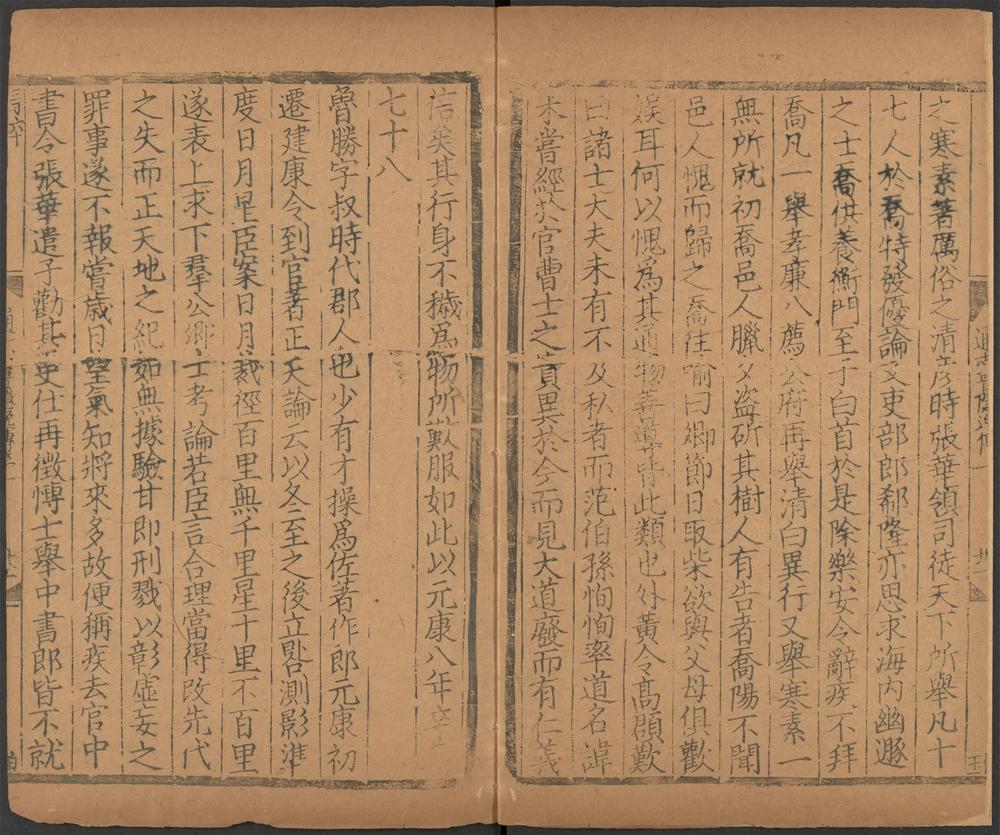 之寒素著厲俗之清彥時張華領司徒天下所舉凡十
七人於喬特發優論又吏部郎郗隆亦思求海内幽遯
之士喬供養衡門至于白首於是除樂安令辭疾不拜
喬凡一舉孝廉八薦公府再舉清白異行又舉寒素一
無所就初喬邑人臘夕盜斫其樹人有告者喬陽不聞
邑人愧而歸之喬往喻曰卿節日取柴欲與父母俱歡
娛耳何以愧爲其通物善導皆此類也外黃令高頵歎
曰諸士大夫未有不及私者而范伯孫恂恂率道名諱
未嘗經於官曹士之貴異於今而見大道廢而有仁義
信矣其行身不穢爲物所歎服如此以元康八年卒
七十八
魯勝字叔時代郡人也少有才操爲佐著作郎元康初
遷建康令到官著正天論云以冬至之後立晷測影準
度日月星臣案日月裁徑百里無千里星十里不百里
遂表上求下羣公卿士考論若臣言合理當得改先代
之失而正天地之紀如無據驗甘即刑戮以彰虛妄之
罪事遂不報嘗歲日望氣知將來多故便稱疾去官中
書令張華遣子勸其更仕再徵博士舉中書郎皆不就